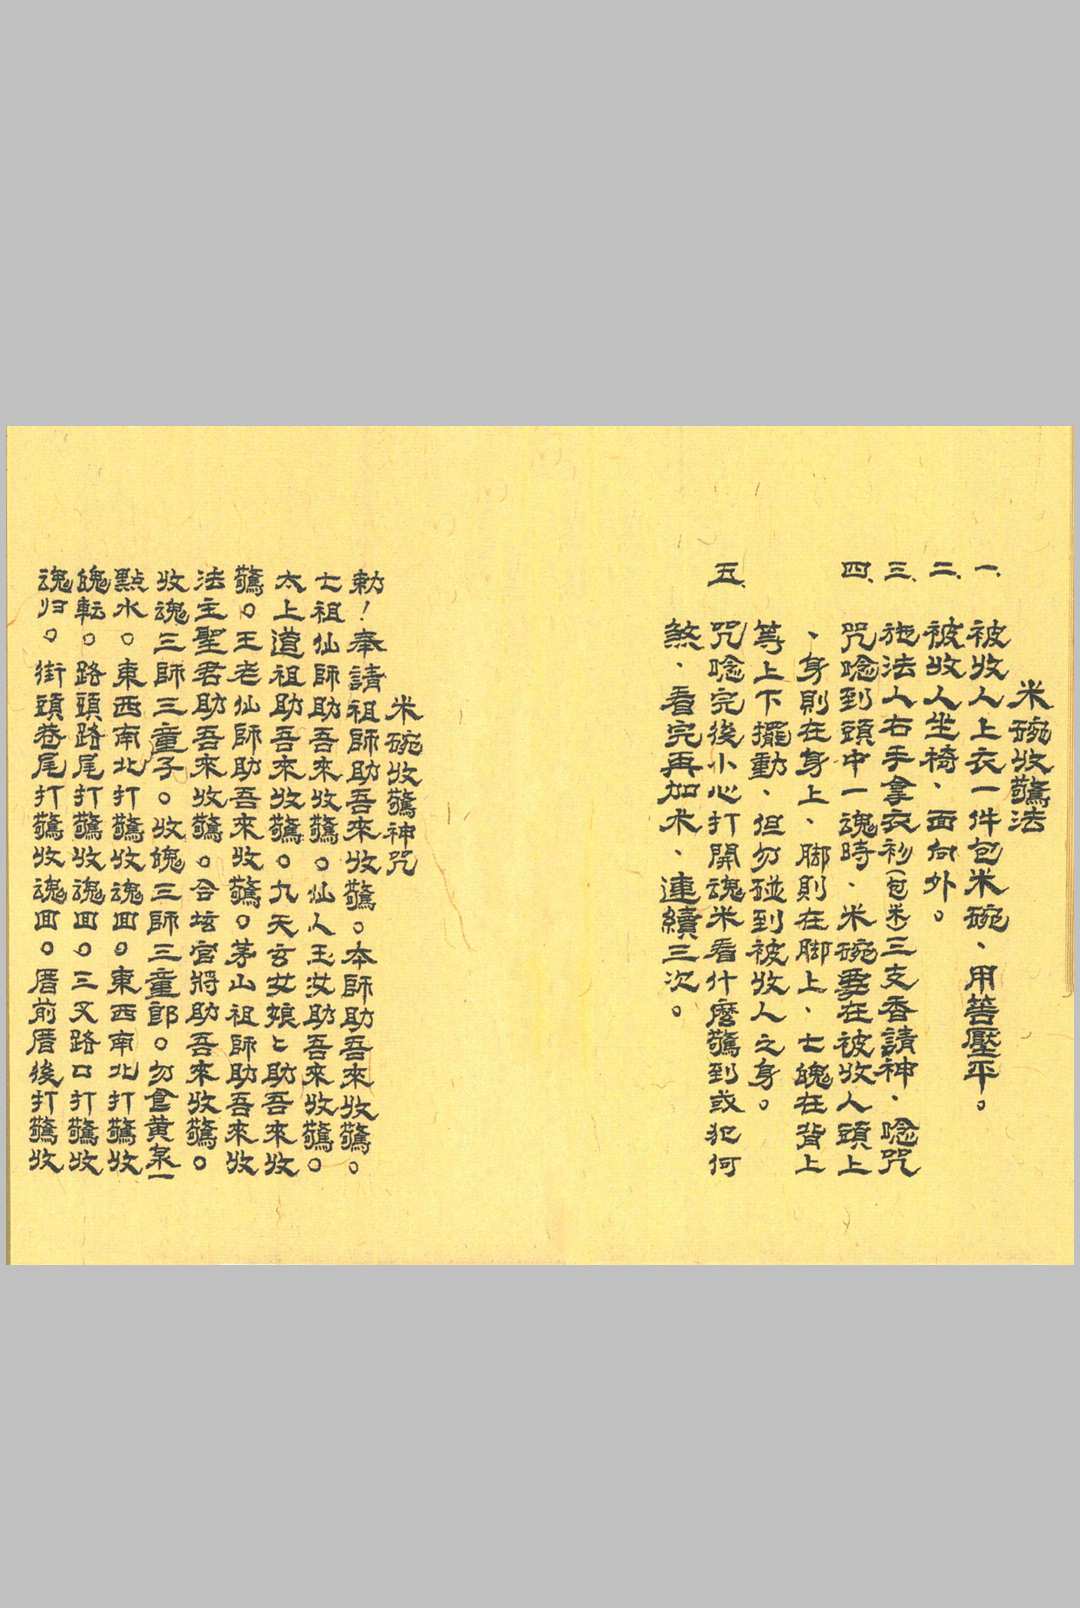 米碗收驚法
一、被收人上衣一件包米碗、用筈壓平。
二、被收人坐椅、面向外。
三、施法人右手拿衣衫(包米)三支香請神、唸咒
四、咒唸到頭中一魂時、米碗要在被收人頭上
、身則在身上、脚則在脚上、七魄在背上
等上下擺動、但勿碰到被收人之身。
五、咒唸完後小心打開魂米看什麼驚到或犯何
煞、看完再加米、連續三次。
米碗收驚神咒
勅!奉請祖師助吾來收驚。本師助吾來收驚。
七祖仙師助吾來收驚。仙人玉女助吾來收驚。
太上道祖助吾來收驚。九天玄女娘〻助吾來收
驚。王老仙師助吾來收驚。茅山祖師助吾來收
法主聖君助吾來收驚。合坛官將助吾來收驚。
收魂三師三童子。收魄三師三童郎。勿食黄泉一
點水。東西南北打驚收魂回。東西南北打驚收
魄転。路頭路尾打驚收魂回。三叉路口打驚收
魂归。街頭巷尾打驚收魂回。厝前厝後打驚收